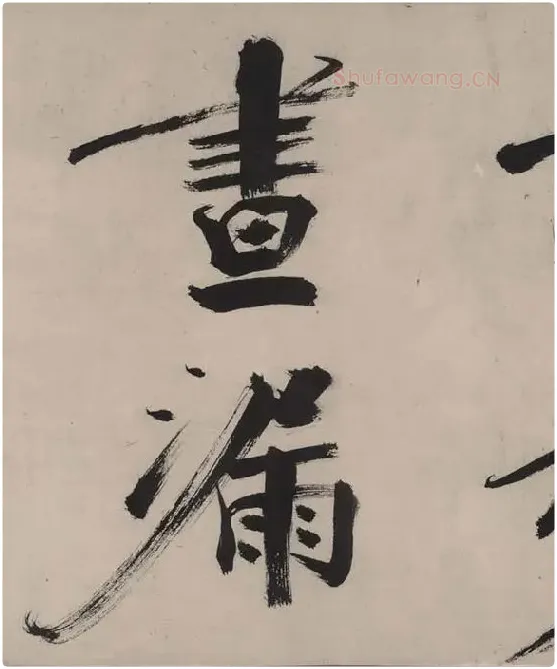 晝漏
Shufawang.CN